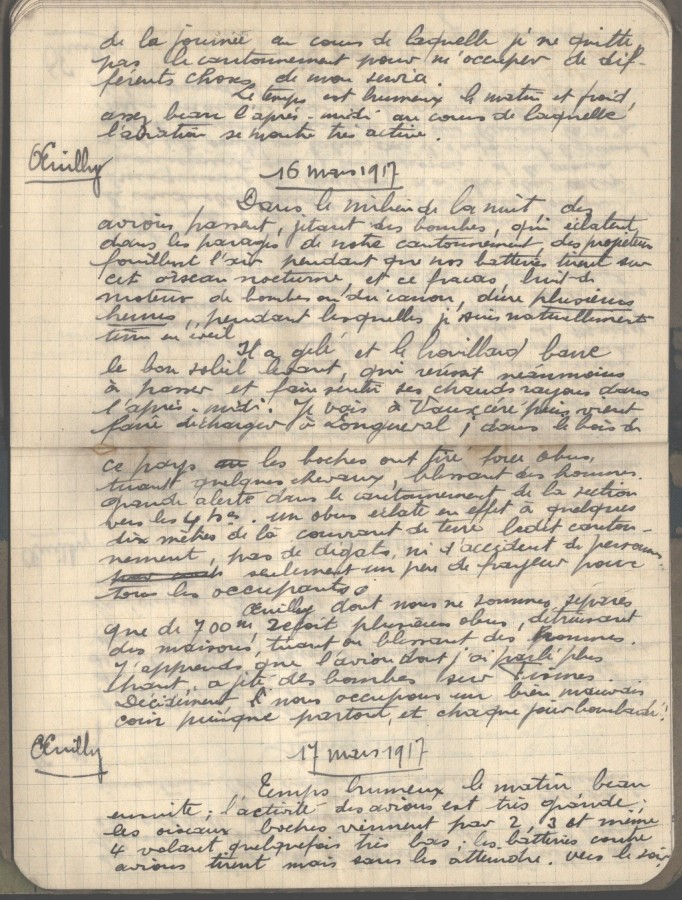 de la journée au cours de laquelle je ne quitte
pas le cantonnement pour m'occuper de dif-
férents choses de mon servia.
Le temps est humeux le matin et froid,
assez beau l'après-midi au cours de laquelle
l'aviation se montre très active.
Œuilly
16 mars 1917
Dans le milieu de la nuit des
avions passent, jetant des bombes, qui éclatent
dans les parages de notre cantonnement, des projecteurs
fouillent l'air pendant que nos batteries tirent sur
cet oiseau nocturne et ce fracas bruit de
moteur de bombes ou du canon, dure plusieurs
heures, pendant lesquelles je suis naturellement
tenu en éveil
Il a gelé et le brouillard barre
le bon soleil levant, qui réussit néanmoins
à passer et faire sentir ses chauds rayons dans
l'après-midi. Je vais à Vauxcéré puis vient
faire décharger à Longueval; dans le bois de
ce pays les boches ont tiré force obus,
tuant quelques chevaux, blessant des hommes.
Grande alerte dans le cantonnement de la section
vers les 4 hes. un obus éclate en effet à quelques
dix mètres de là couvrant de terre ledit canton-
nement, pas de dégats, ni d'accident de personne
seulement un peu de frayeur pour
tous les occupants.
Œuilly dont nous ne sommes séparés
que de 700m reçoit plusieurs obus, détruisant
des maisons, tuant ou blessant des hommes.
J'apprends que l'avion dont j'ai parlé plus
haut, a jeté des bombes sur Fismes.
Décidément nous occupons un bien mauvais
coin puisque partout, et chaque jour bombardé!
Œuilly
17 mars 1917
Temps humeux le matin beau
ensuite; l'activité des avions est très grande;
les oiseaux boches viennent par 2, 3 et même
4 volant quelquefois très bas; les batteries contre
avions tirent mais sans les atteindre. Vers le soir